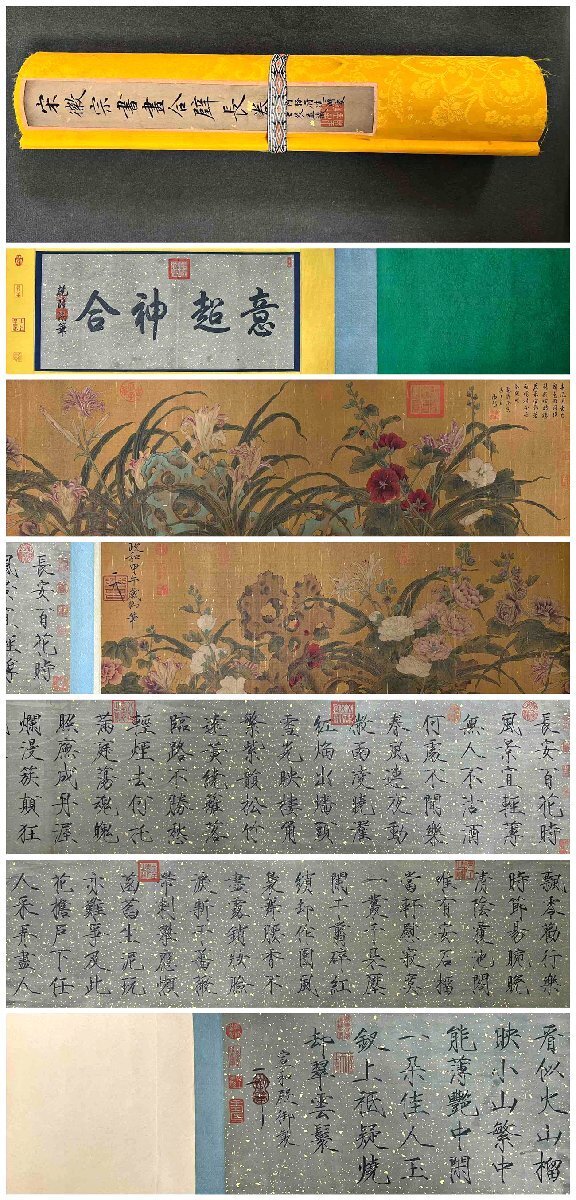 宋徽宗書畫合璧長卷
意超神合
乾隆御筆
政和甲午歲御筆
長安百花時
長安百花時
風景宜輕薄
無人不沽酒
何處不聞樂
春風連夜動
微雨凌曉濯
紅焰出墻頭
雪光映樓角
繁紫韻松竹
遠黃繞籬落
臨路不勝愁
輕煙去何託
滿庭蕩魂魄
照廡成丹渥
爛漫簇顛狂
飄零勸行樂
時節易晼晚
清陰覆池閣
唯有安石榴
當軒慰寂寞
一叢千朵壓
闌干翦碎紅
綃却作團風
裊舞腰香不
盡露銷妝臉
淚新干薔薇
帶刺攀應懶
菡萏生泥玩
亦難爭及此
花檐戶下任
人采弄盡人
看似火山榴
映小山繁中
能薄艷中閑
一朵佳人玉
釵上秖疑燒
却翠雲鬟
宣和殿御製